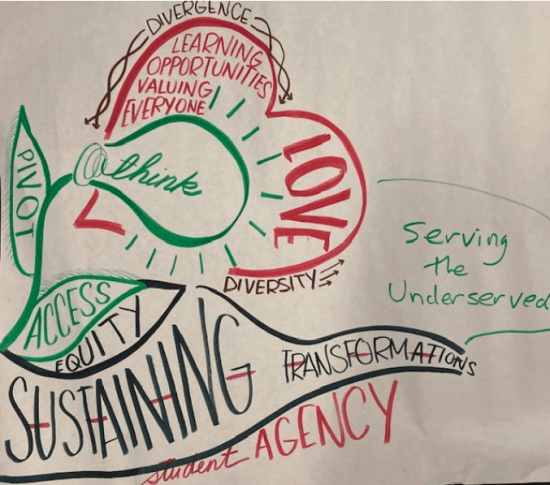 DIVERGENCE
LEARNING
OPPORTUNITIES
VALUING
EVERYONE
think
PIVOT
LOVE
DIVERSITY
Serving
the
Underserved
ACCESS
EQUITY
SUSTAINING
TRANSFORMATIONS
student AGENCY